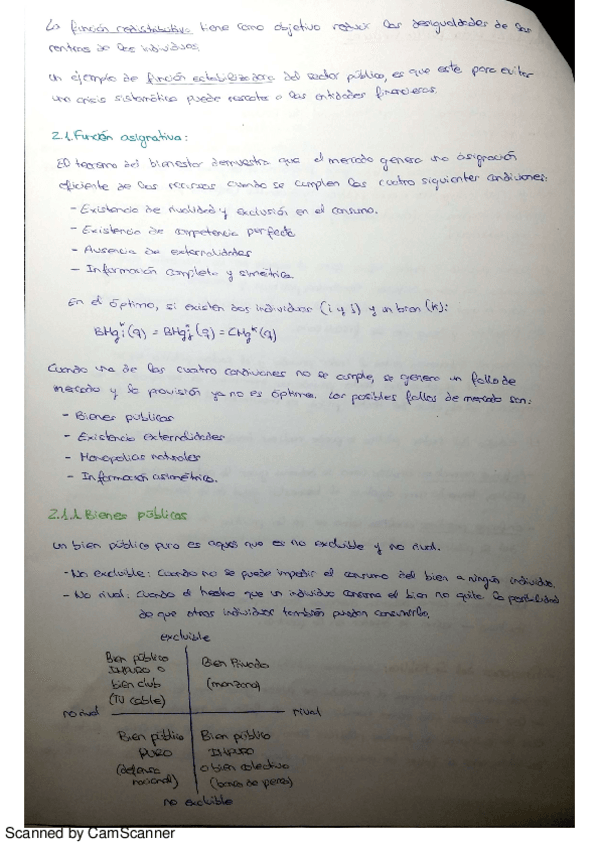 La función redistributiva tiene como objetivo reducir las desigualdades de las
rentas de los individuos.
Un ejemplo de función estabilizadora del sector público, es que este para evitar
una crisis sistemática puede rescatar a las entidades financieras.
2.1. Función asignativa:
El teorema del bienestar demuestra que el mercado genera una asignación
eficiente de los recursos cuando se cumplen las cuatro siguientes condiciones:
- Existencia de rivalidad y exclusión en el consumo.
- Existencia de competencia perfecta
- Ausencia de externalidades
- Información completa y simétrica.
En el óptimo, si existen dos individuos (i y j) y un bien (k):
BMgᵢᵏ(q) = BMgⱼᵏ(q) = CMgᵏ(q)
Cuando una de las cuatro condiciones no se cumple, se genera un fallo de
mercado y la provisión ya no es óptima. Los posibles fallos de mercado son:
- Bienes públicos
- Existencia externalidades
- Monopolios naturales
- Información asimétrica.
2.1.1. Bienes públicos
Un bien público puro es aquel que es no excluible y no rival.
- No excluible: Cuando no se puede impedir el consumo del bien a ningún individuo.
- No rival: cuando el hecho que un individuo consuma el bien no quite la posibilidad
de que otros individuos también puedan consumirlo.
excluible
Bien público
IMPURO o
bien club
(TV cable)
Bien Privado
(manzana)
no rival
rival
Bien público
PURO
(defensa
nacional)
Bien público
IMPURO
o bien colectivo
(banco de peces)
no excluible
Scanned by CamScanner